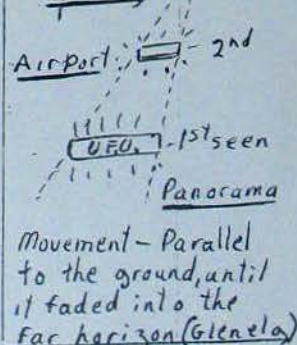 2nd
Airport
U.F.O.
1st seen
Panorama
Movement - Parallel
to the ground, until
it faded into the
far horizon (Glenelg)